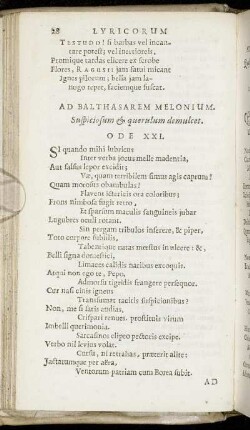 28 LYRICORUM
TESTUDO! si barbas vel incan-
tare potest; vel inertioreis,
Promique tardas elicere ex scrobe
Flores, RAGUSI jam satui micant
Ignes pilorum; bella jam la-
nugo tepet, faciemque fuscat.
AD BALTHASAREM MELONIUM.
Suspiciosum & querulum demulcet.
ODE XXI.
SI quando mihi lubricus
Inter verba jocus melle madentia,
Aut salsus lepor excidit;
Væ, quam terribilem simus agis caprum!
Quam morosus obambulas!
Flavens ictericis ora coloribus;
Frons nimbosa fugit retro,
Et sparsum maculis sanguineis jubar
Lugubres oculi rotant.
Sin pergam tribulos inserere, & piper,
Toto corpore subsilis,
Tabemique natas morsus in ulcere: &,
Belli signa domestici,
Limaces calidis naribus excoquis.
Atqui non ego te, Pepo,
Admorsu tigridis frangere persequor.
Cur nasi cinis igneus
Transfumat tacitis suspicionibus?
Non, me si satis audias,
Crispari renues, prostituis virum
Imbelli querimonia.
Sarcasmos clipeo pectoris excipe.
Verbo nil levius volat.
Cursu, ni retrahas, præterit alite:
Jactatumque per aëra,
Ventorum patriam cum Borea subit.
AD